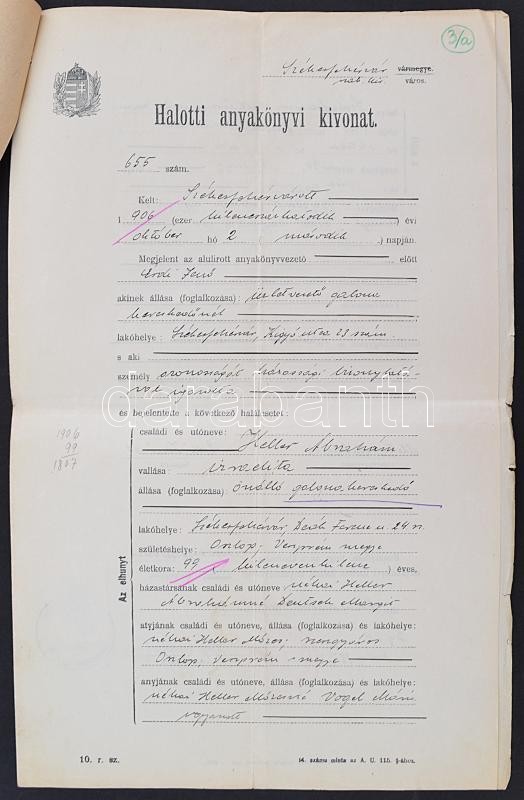 3/a
Székesfehérvár vármegye.
város.
Halotti anyakönyvi kivonat.
655 szám.
Kelt: Székesfehérvárott
1 906 (ezer kilencszázhatodik) évi
október hó 2 (második) napján.
Megjelent az alulirott anyakönyvvezető előtt
Erdi Jenő
akinek állása (foglalkozása): üzletvezető gabona
kereskedőnél
lakóhelye: Székesfehérvár, Kigyó utca 23 szám
s aki
személy azonosságát
igazolta
és bejelentette a következő halálesetet:
családi és utóneve:
Heller Ábrahám
vallása: izraelita
állása (foglalkozása): önálló gabonakereskedő
lakóhelye: Székesfehérvár, Deák Ferenc u. 24 sz.
születéshelye: Veszprém megye
életkora: 99 (kilencvenkilenc) éves,
házastársának családi és utóneve: néhai Heller
Ábrahámné Deutsch
atyjának családi és utóneve, állása (foglalkozása) és lakóhelye:
néhai Heller Mózes,
Veszprém megye
anyjának családi és utóneve, állása (foglalkozása) és lakóhelye:
néhai Heller Mózesné Vogel Mári
ugyanott
Az elhunyt
1906
99
1807
darabanth
10. r. sz.
14. számu minta az A. U. 115. §-ához.